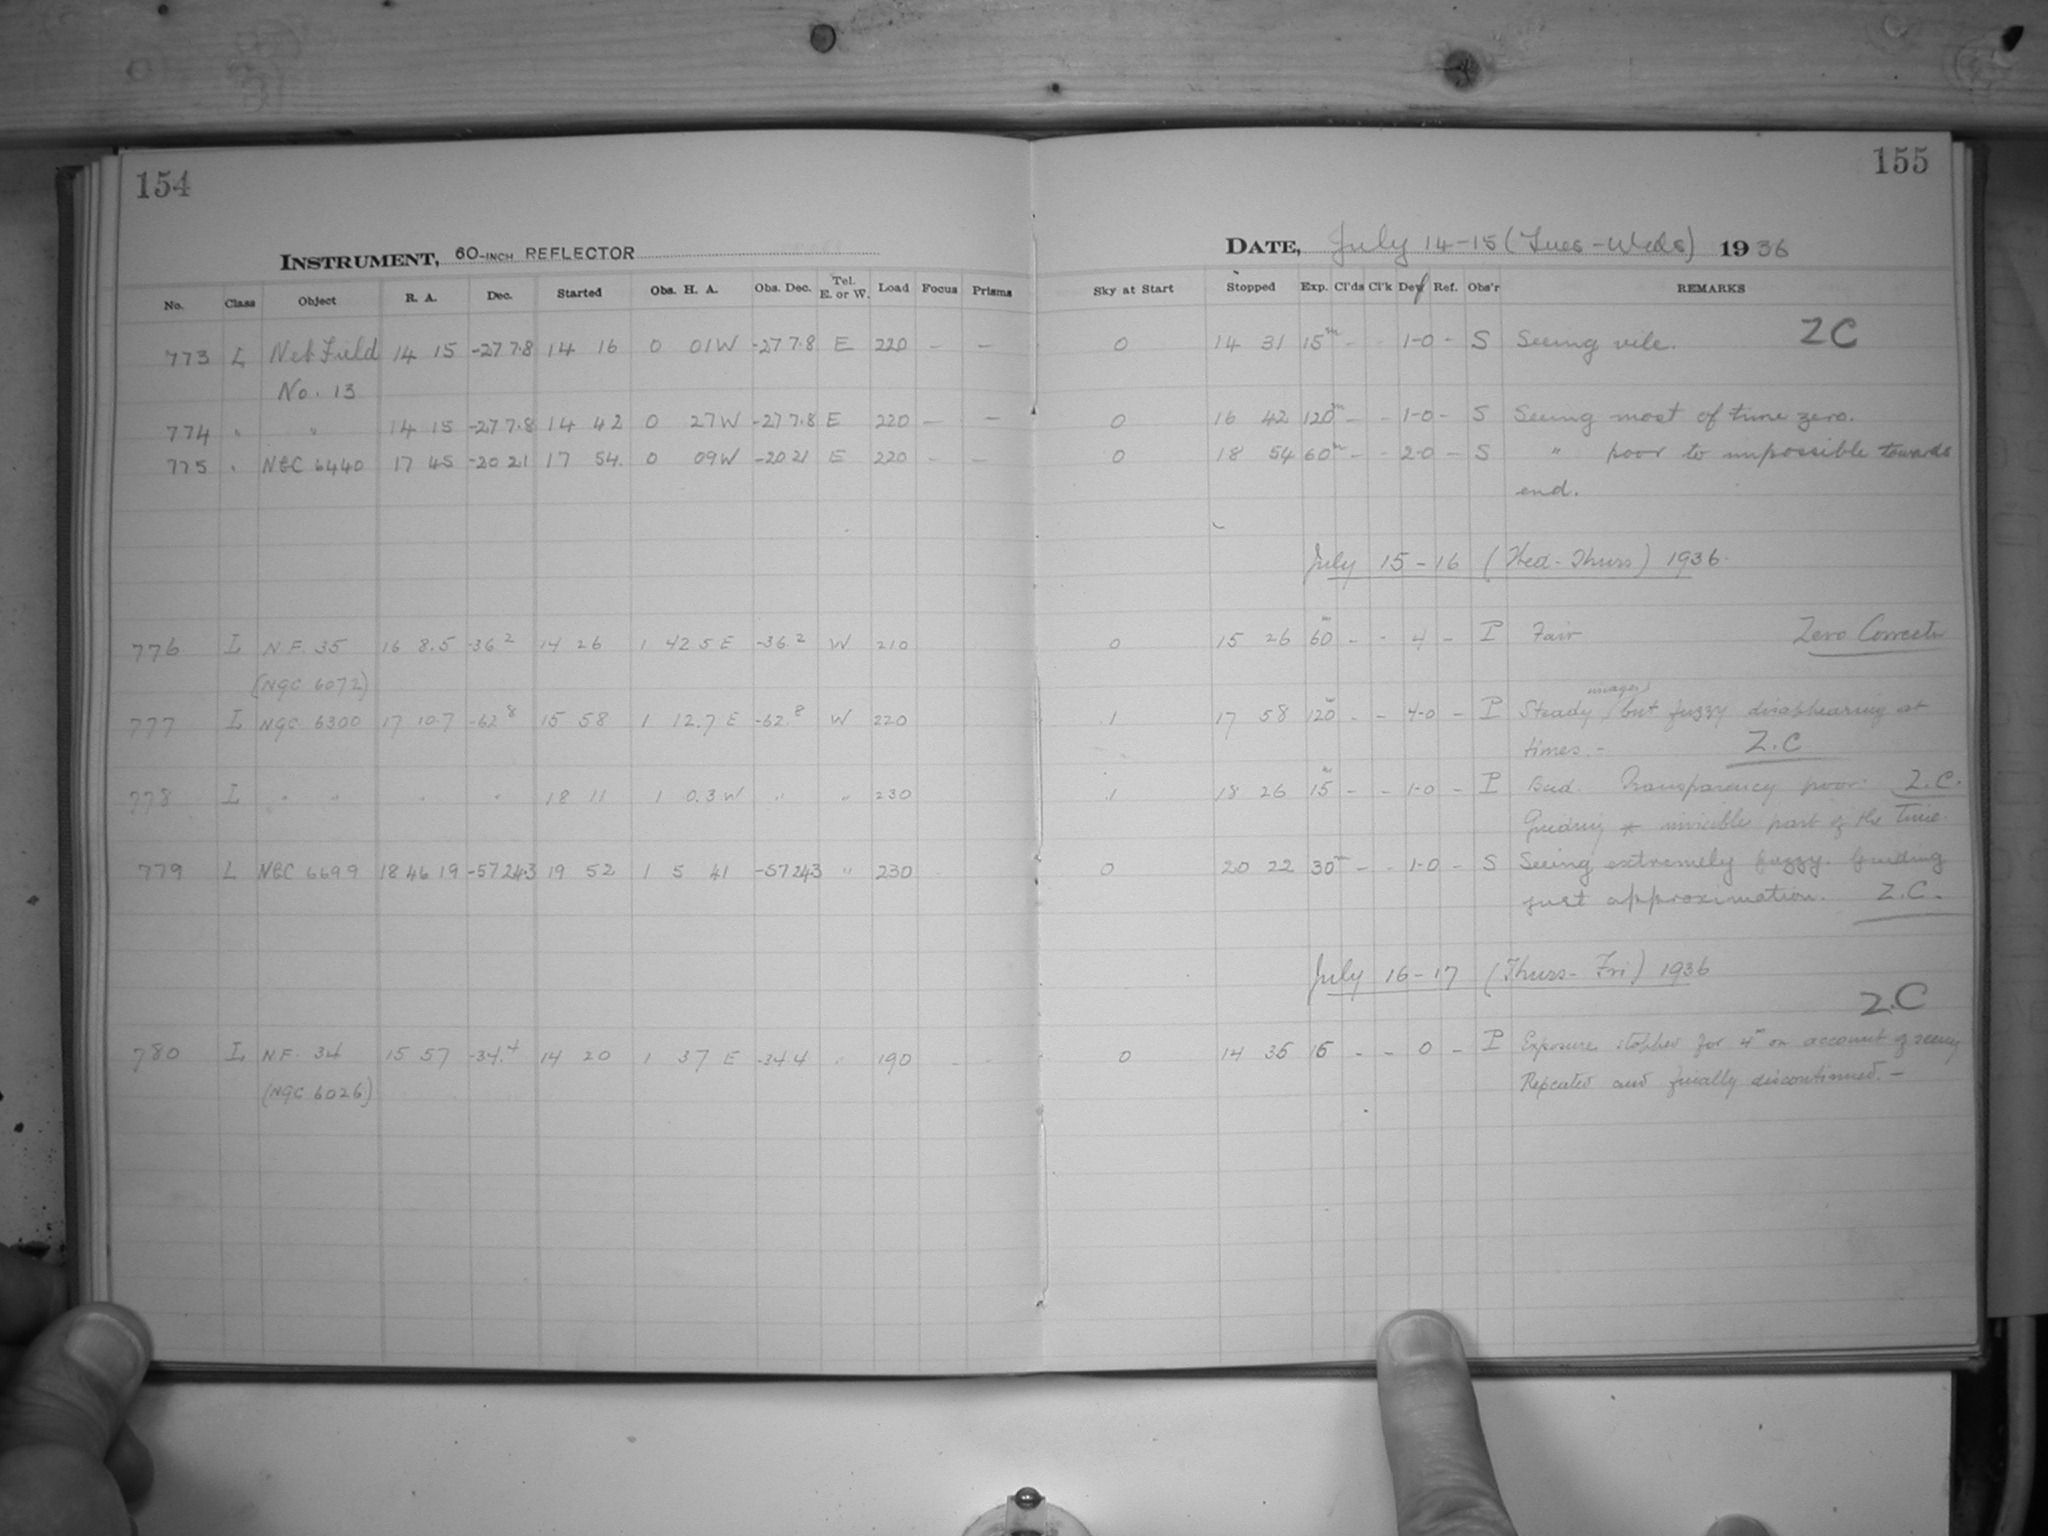 154
155
INSTRUMENT, 60-INCH REFLECTOR
DATE, July 14-15 (Tues-Weds) 1936
No. Class Object R. A. Dec. Started Obs. H. A. Obs. Dec. Tel. E. or W. Load Focus Prisms Sky at Start Stopped Exp. Cl'ds Cl'k Dew Ref. Obs'r REMARKS
ZC
773 L Neb Field 14 15 -27 7.8 14 16 0 01 W -27 7.8 E 220 - - 0 14 31 15m - - 1-0 - S Seeing vile.
No. 13
774 " " 14 15 -27 7.8 14 42 0 27 W -27 7.8 E 220 - - 0 16 42 120m - - 1-0 - S Seeing most of time zero.
775 " NGC 6440 17 45 -20 21 17 54. 0 09 W -20 21 E 220 - - 0 18 54 60m - - 2-0 - S " poor to impossible towards
end.
July 15-16 (Wed-Thurs) 1936.
776 L N.F. 35 16 8.5 -36 2 14 26 1 42.5 E -36.2 W 210 0 15 26 60m - - 4 - P Fair Zero Corrector
(NGC 6072)
777 L NGC 6300 17 10.7 -62 8 15 58 1 12.7 E -62.8 W 220 1 17 58 120m - - 4-0 - P Steady images but fuzzy disappearing at
times. - Z.C
778 L " " " " 18 11 1 0.3 W " " 230 1 18 26 15m - - 1-0 - P Bad. Transparency poor. Z.C.
Guiding * invisible part of the time.
779 L NGC 6699 18 46 19 -57 24.3 19 52 1 5 41 -57 24.3 " 230 0 20 22 30m - - 1-0 - S Seeing extremely fuzzy. Guiding
just approximation. Z.C.
July 16-17 (Thurs-Fri) 1936
Z.C
780 L N.F. 34 15 57 -34.4 14 20 1 37 E -34.4 " 190 - - 0 14 35 15 - - 0 - P Exposure stopped for 4m on account of seeing
(NGC 6026) Repeated and finally discontinued. -